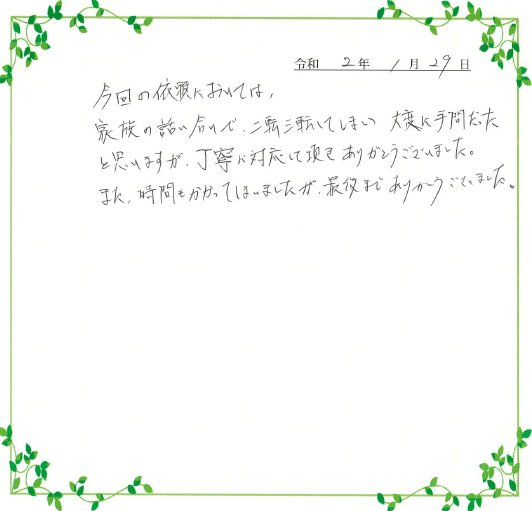 令和 2年 1月29日
今回の依頼においては、
家族の話し合いで、二転三転してしまい 大変に手間だった
と思いますが、丁寧に対応して頂きありがとうございました。
また、時間もかかってしまいましたが、最後まで ありがとうございました。